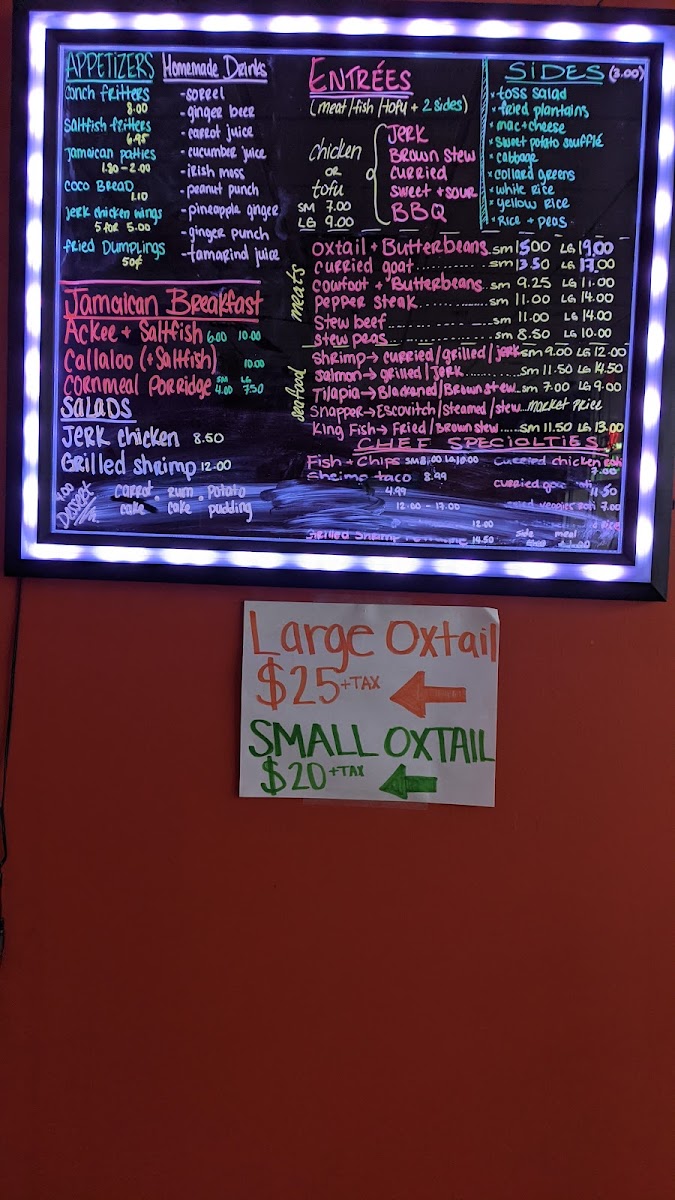 APPETIZERS
Conch fritters
8.00
Saltfish fritters
6.95
Jamaican patties
1.80-2.00
COCO BREAD
1.10
Jerk chicken wings
5 for 5.00
fried Dumplings
50¢
Homemade Drinks
-sorrel
-ginger beer
-carrot juice
-cucumber juice
-irish moss
-peanut punch
-pineapple ginger
-ginger punch
-tamarind juice
Jamaican Breakfast
Ackee + Saltfish 6.00 10.00
Callaloo (+Saltfish) 10.00
Cornmeal Porridge SM 4.00 LG 7.50
SALADS
Jerk chicken 8.50
Grilled shrimp 12.00
Dessert
carrot cake • rum cake • potato pudding
ENTRÉES
(meat/fish/tofu + 2 sides)
chicken
OR
tofu
SM 7.00
LG 9.00
JERK
BROWN STEW
CURRIED
SWEET + SOUR
BBQ
SIDES (3.00)
• toss salad
• fried plantains
• mac + cheese
• sweet potato soufflé
• cabbage
• collard greens
• white rice
• yellow Rice
• Rice + peas
meats
oxtail + Butterbeans SM 15.00 LG 19.00
curried goat SM 13.50 LG 17.00
cowfoot + Butterbeans SM 9.25 LG 11.00
pepper steak SM 11.00 LG 14.00
Stew beef SM 11.00 LG 14.00
stew peas SM 8.50 LG 10.00
seafood
Shrimp → curried/grilled/jerk SM 9.00 LG 12.00
Salmon → grilled/JERK SM 11.50 LG 14.50
Tilapia → Blackened/Brown stew SM 7.00 LG 9.00
Snapper → Escovitch/steamed/stew market price
King Fish → Fried/Brown stew SM 11.50 LG 13.00
CHEF SPECIALTIES
Fish + Chips SM 8.00 LG 10.00
Shrimp taco 8.99
4.99
12.00 - 17.00
12.00
Grilled Shrimp 14.50
curried chicken Roti
7.00
curried
11.50
veggies Roti 7.00
Rice
side meal
Large Oxtail
$25 +TAX
SMALL OXTAIL
$20 +TAX